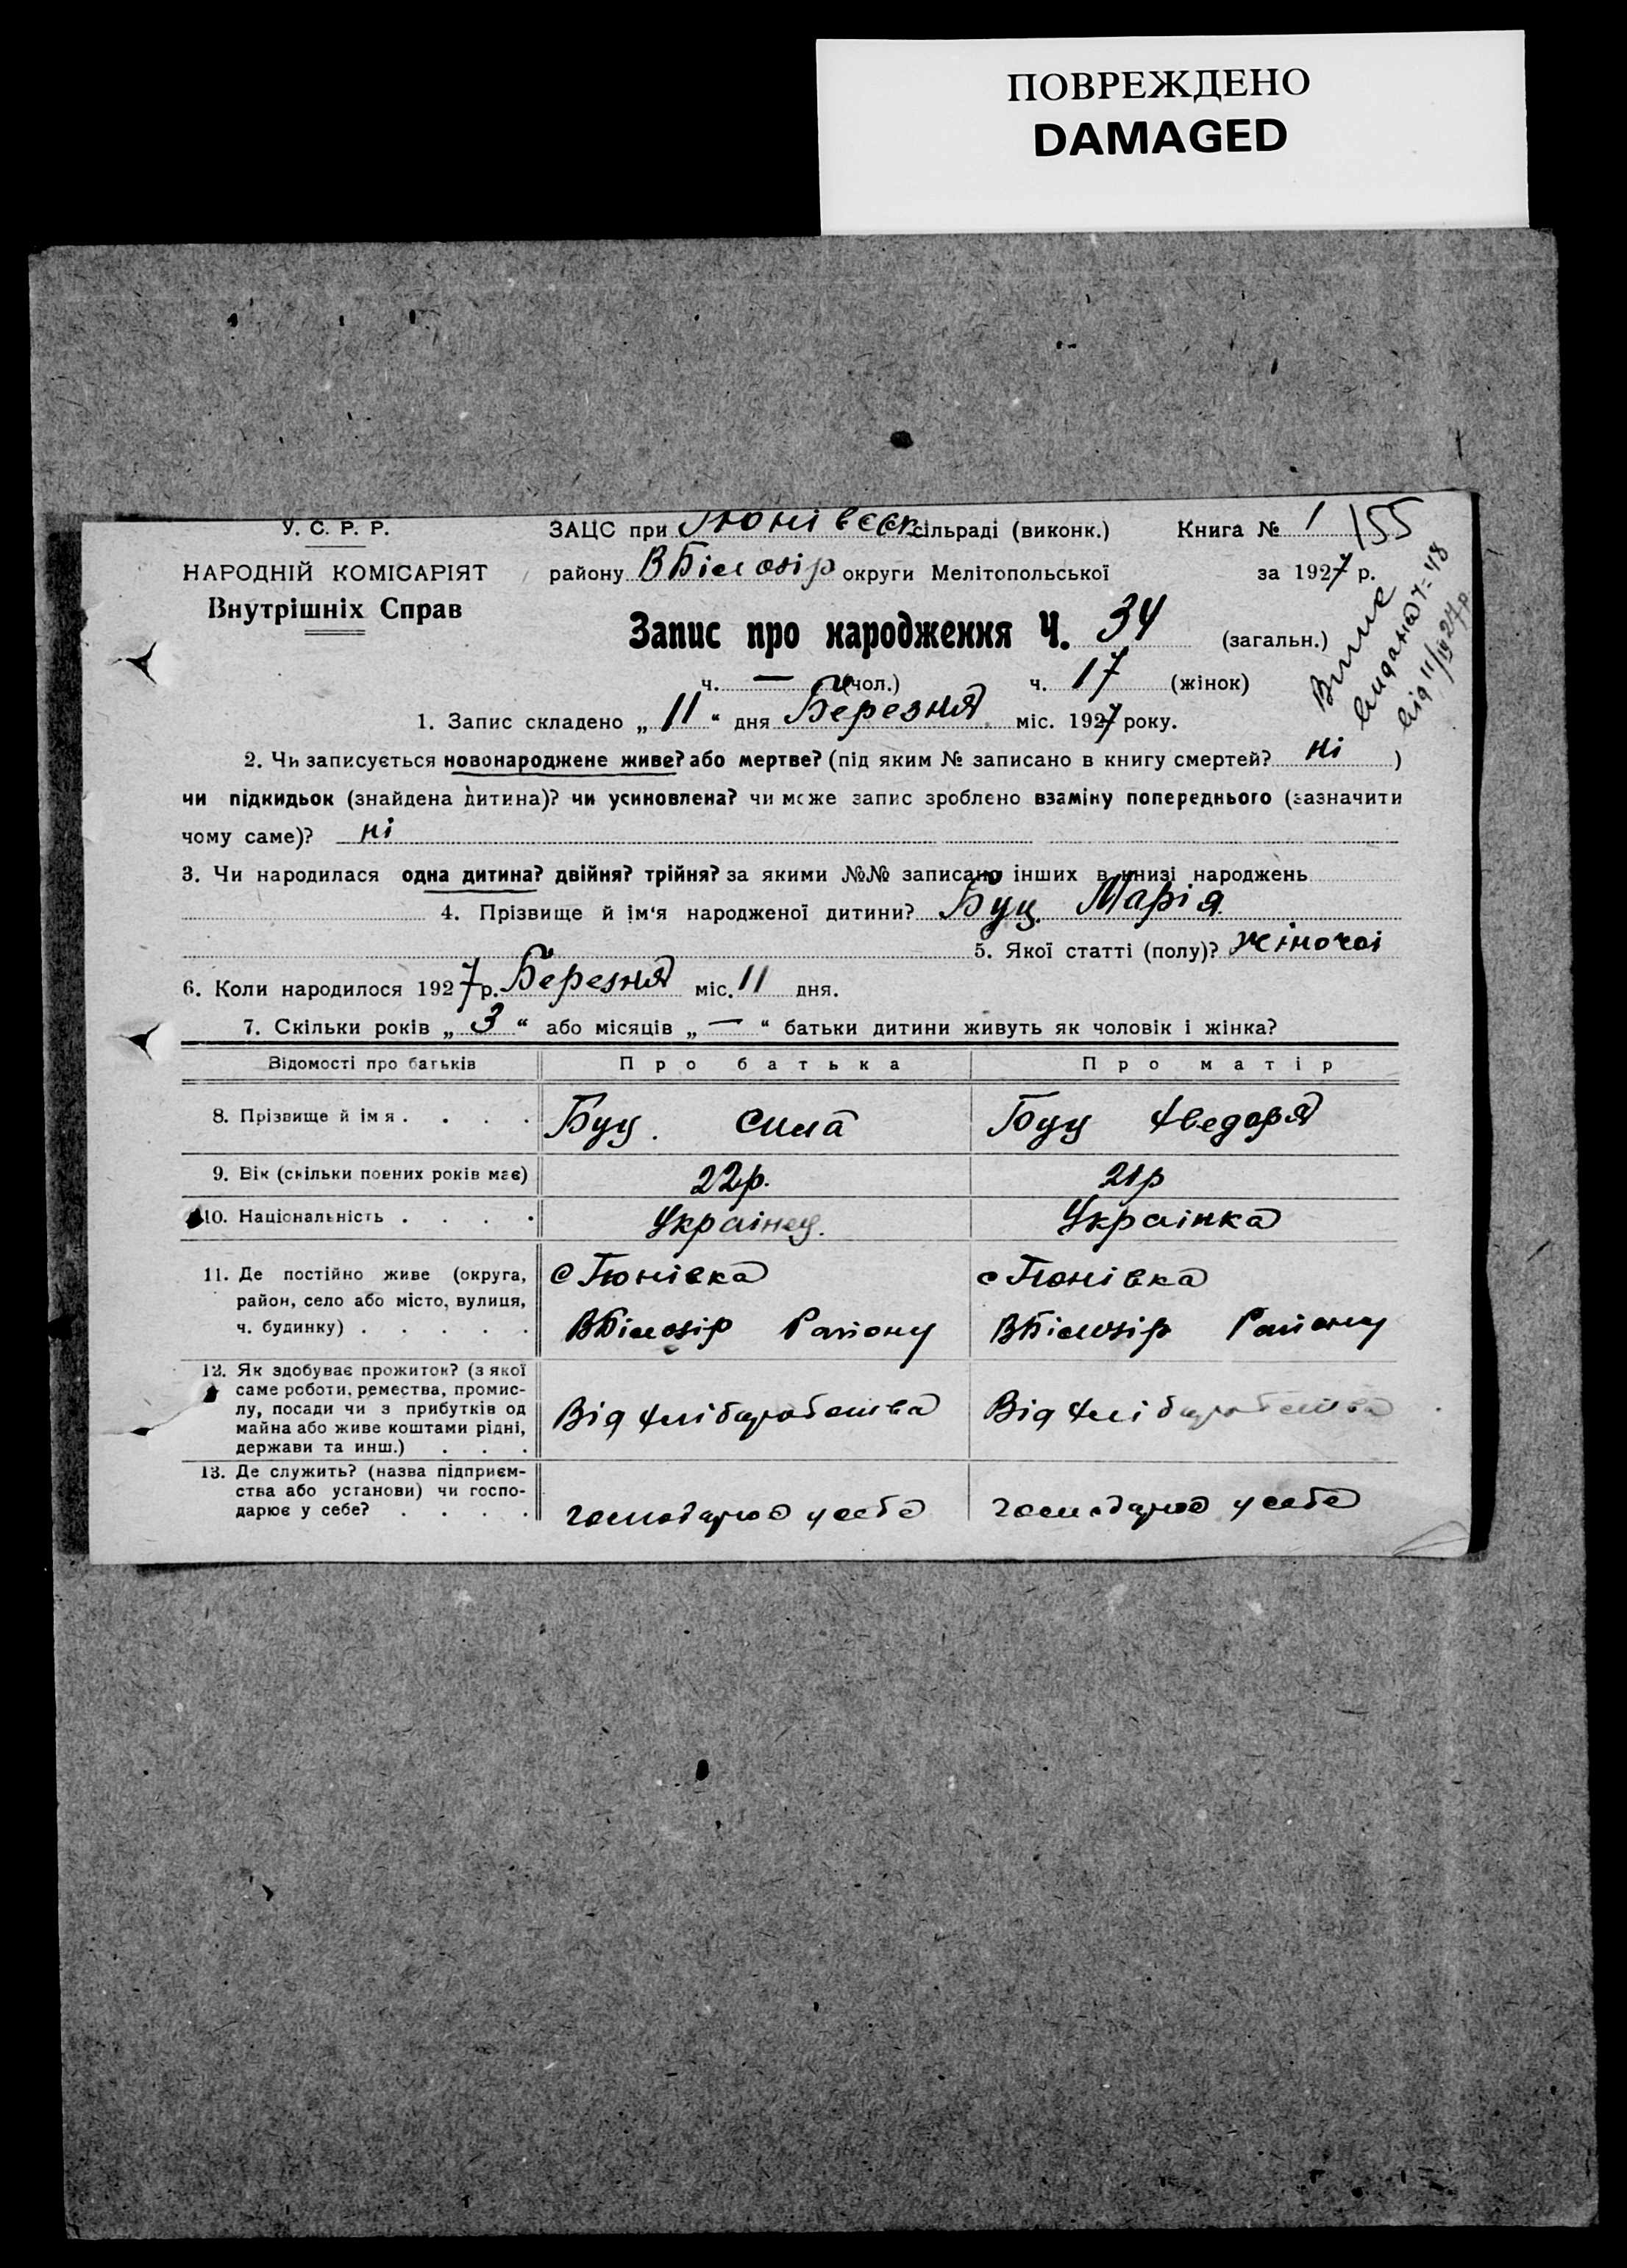 ПОВРЕЖДЕНО
DAMAGED
У. С. Р. Р.
НАРОДНІЙ КОМІСАРІЯТ
Внутрішніх Справ
ЗАЦС при Тюнівєвк. сільраді (виконк.)
Книга № 1 155
району ВБілозір округи Мелітопольської
за 1927 р.
Запис про народження Ч. 34 (загальн.)
ч. — (чол.) ч. 17 (жінок)
видана ч-48
від 11/ 1927 р.
1. Запис складено „ 11 “ дня Березня міс. 1927 року.
2. Чи записується новонароджене живе? або мертве? (під яким № записано в книгу смертей? ні )
чи підкидьок (знайдена дитина)? чи усиновлена? чи може запис зроблено взаміну попереднього (зазначити
чому саме)? ні
3. Чи народилася одна дитина? двійня? трійня? за якими №№ записано інших в книзі народжень
4. Прізвище й ім‘я народженої дитини? Буц Марія
5. Якої статті (полу)? жіночоі
6. Коли народилося 1927 р. Березня міс. 11 дня.
7. Скільки років „ 3 “ або місяців „ — “ батьки дитини живуть як чоловік і жінка?
Відомості про батьків
Про батька
Про матір
8. Прізвище й імя . . . .
Буц. Сила
Буц Хведоря
9. Вік (скільки повних років має)
22р.
21р
10. Національність . . . .
Украінец.
Украінка
11. Де постійно живе (округа,
район, село або місто, вулиця,
ч. будинку) . . . . .
с Тюнівка
ВБілозір Району
с Тюнівка
ВБілозір Району
12. Як здобуває прожиток? (з якої
саме роботи, ремества, промис-
лу, посади чи з прибутків од
майна або живе коштами рідні,
держави та инш.) . . .
Від хлібаробства
Від хлібаробства
13. Де служить? (назва підприєм-
ства або установи) чи госпо-
дарює у себе? . . . .
господарює у себе
господарює у себе